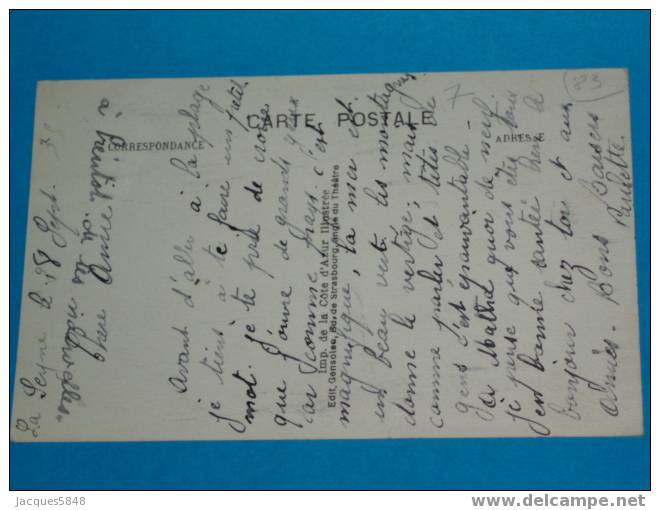 CARTE POSTALE
CORRESPONDANCE
ADRESSE
La Seyne le 28 Sept.
Chère Annie
Avant d'aller à la plage
je tiens à te faire un petit
mot. je te prie de croire
que j'ouvre de grands yeux
car comme pays c'est
magnifique, la mer est
un beau vert, les montagnes
donne le vertige; mais
comme parler et têtes de
gens c'est épouvantable.
J'ai quoi de neuf.
je pense que vous êtes tous
en bonne santé, bien le
bonjour chez toi et aux
amies. Bons baisers
Paulette.
à bientôt de tes nouvelles.
Imp. de la Côte d'Azur Illustrée
Edit. Gensoise, Bd. de Strasbourg, angle du Théâtre
Jacques5848
delcampe.net